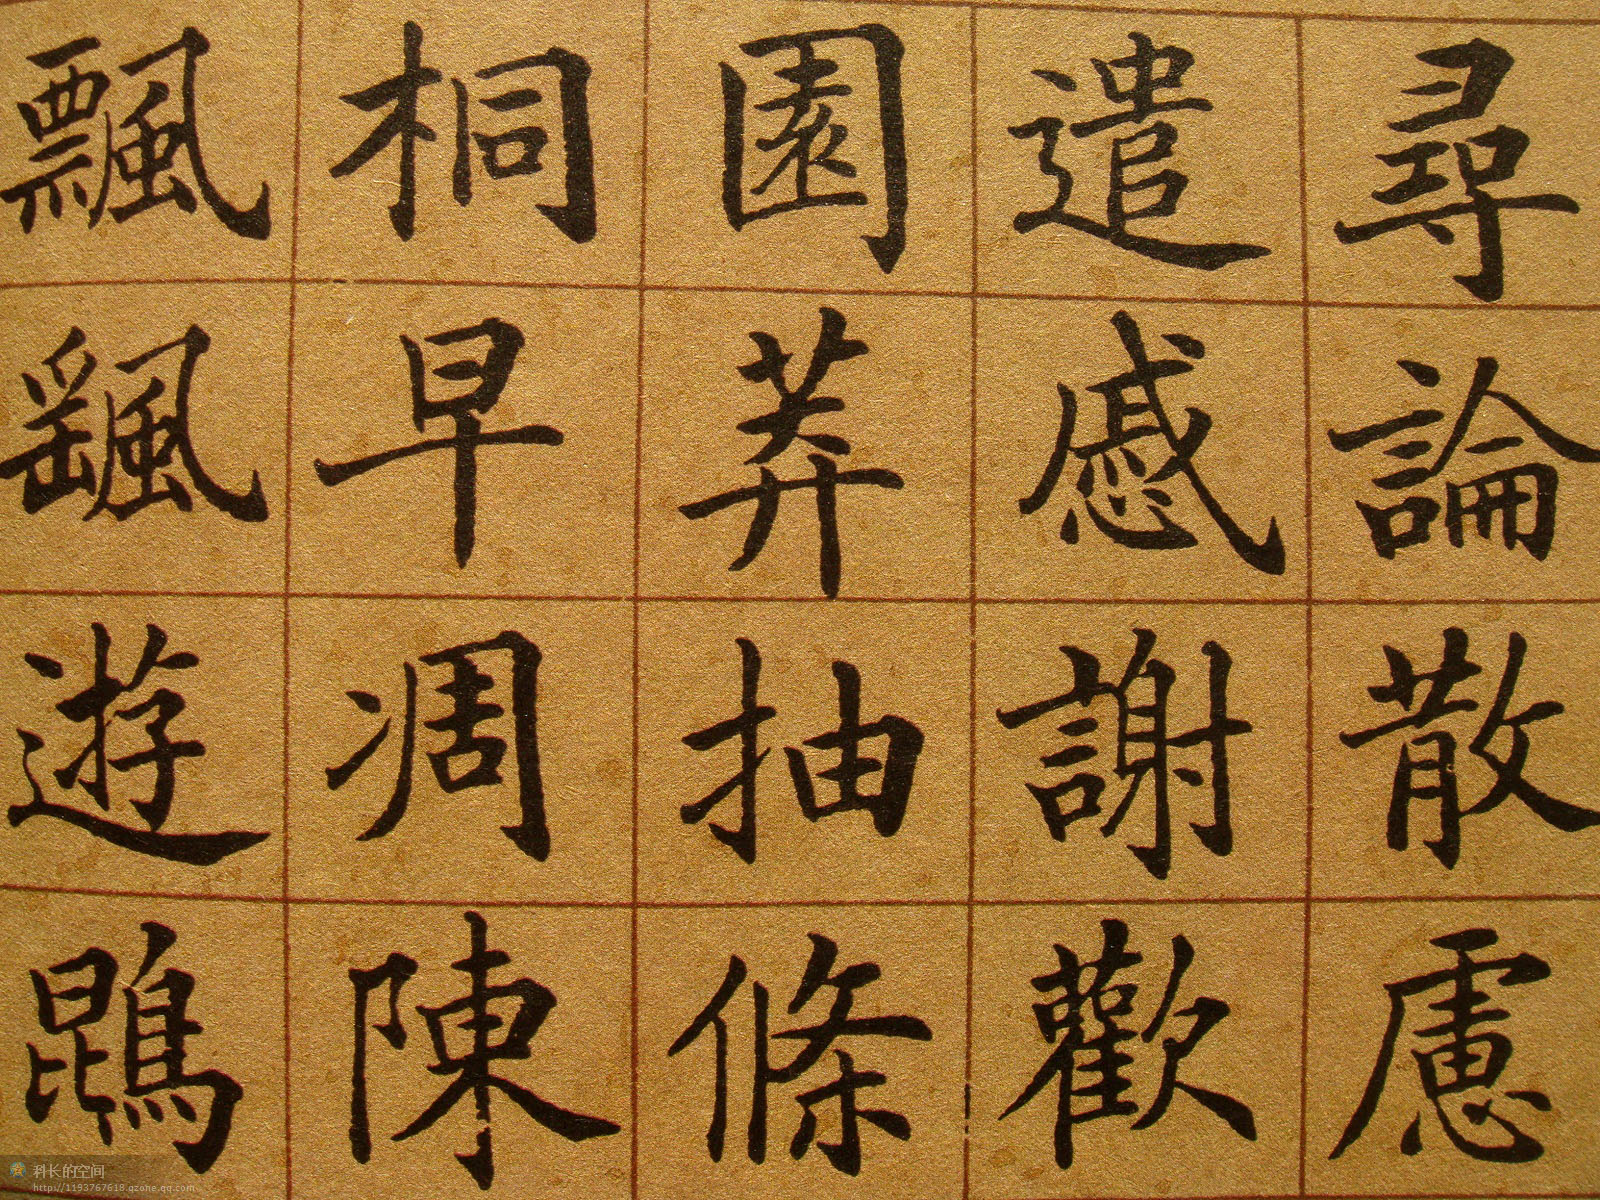 尋論散慮
遣慼謝歡
園莽抽條
桐早凋陳
飄颻遊鵾
科长的空间
http://1193767618.qzone.qq.com